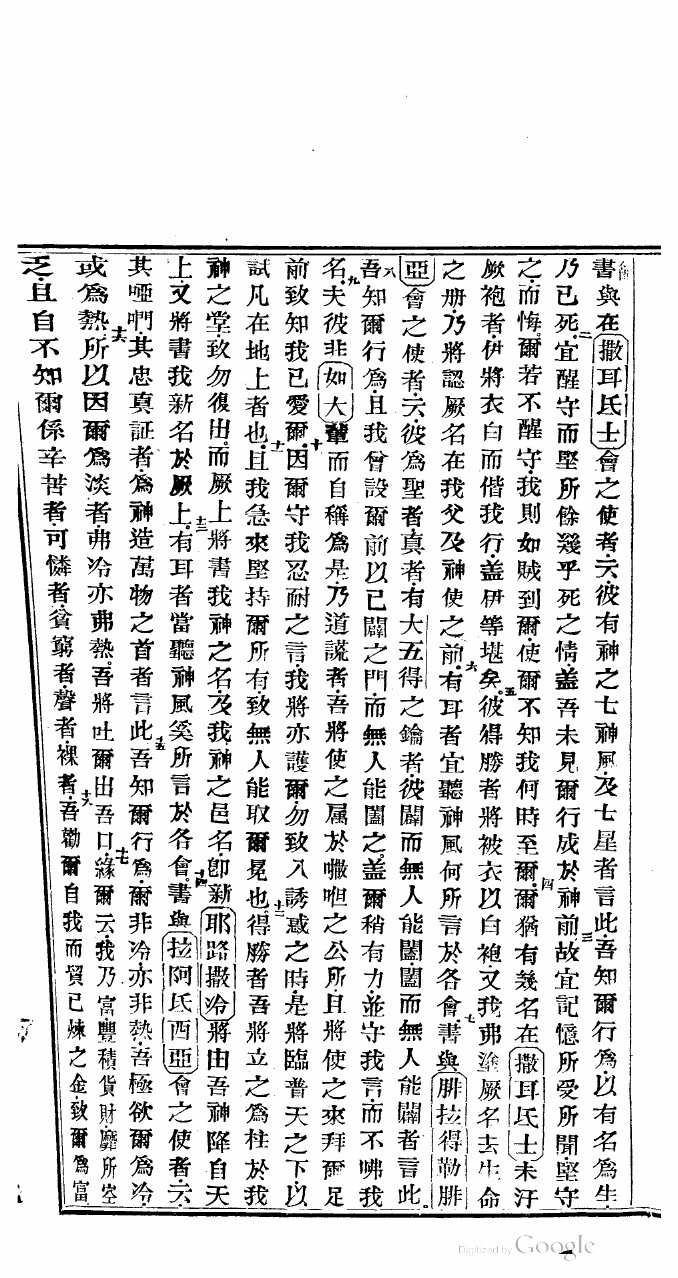 書與在撒耳氐士會之使者云彼有神之七神風及七星者言此吾知爾行爲以有名爲生
乃已死二宜醒守而堅所餘幾乎死之情盖吾未見爾行成於神前三故宜記憶所愛所聞堅守
之而悔爾若不醒守我則如賊到爾使爾不知我何時至爾四爾猶有幾名在撒耳氐士未汙
厥袍者伊將衣白而偕我行盖伊等堪矣五彼得勝者將被衣以白袍又我弗塗厥名去生命
之册乃將認厥名在我父及神使之前六有耳者宜聽神風何所言於各會七書與腓拉得勒腓
亞會之使者云彼爲聖者真者有大五得之鑰者彼闢而無人能闔闔而無人能闢者言此
八吾知爾行爲且我曾設爾前以已闢之門而無人能闔之盖爾稍有力並守我言而不咈我
名九夫彼非如大輩而自稱爲是乃道謊者吾將使之属於㘔呾之公所且將使之來拜爾足
前致知我已愛爾十因爾守我忍耐之言我將亦護爾勿致入誘惑之時是將臨普天之下以
試凡在地上者也十一且我急來堅持爾所有致無人能取爾冕也十二得勝者吾將立之爲柱於我
神之堂致勿復出而厥上將書我神之名及我神之邑名卽新耶路撒冷將由吾神降自天
上又將書我新名於厥上十三有耳者當聽神風奚所言於各會十四書與拉阿氐西亞會之使者云
其啞㕫其忠真証者爲神造萬物之首者言此十五吾知爾行爲爾非冷亦非熱吾極欲爾爲冷
或爲熱十六所以因爾爲淡者弗冷亦弗熱吾將吐爾出吾口十七緣爾云我乃富豐積貨財靡所空
乏且自不知爾係辛苦者可憐者貧窮者瞽者裸者十八吾勸爾自我而貿已煉之金致爾爲富
Digitized by Google